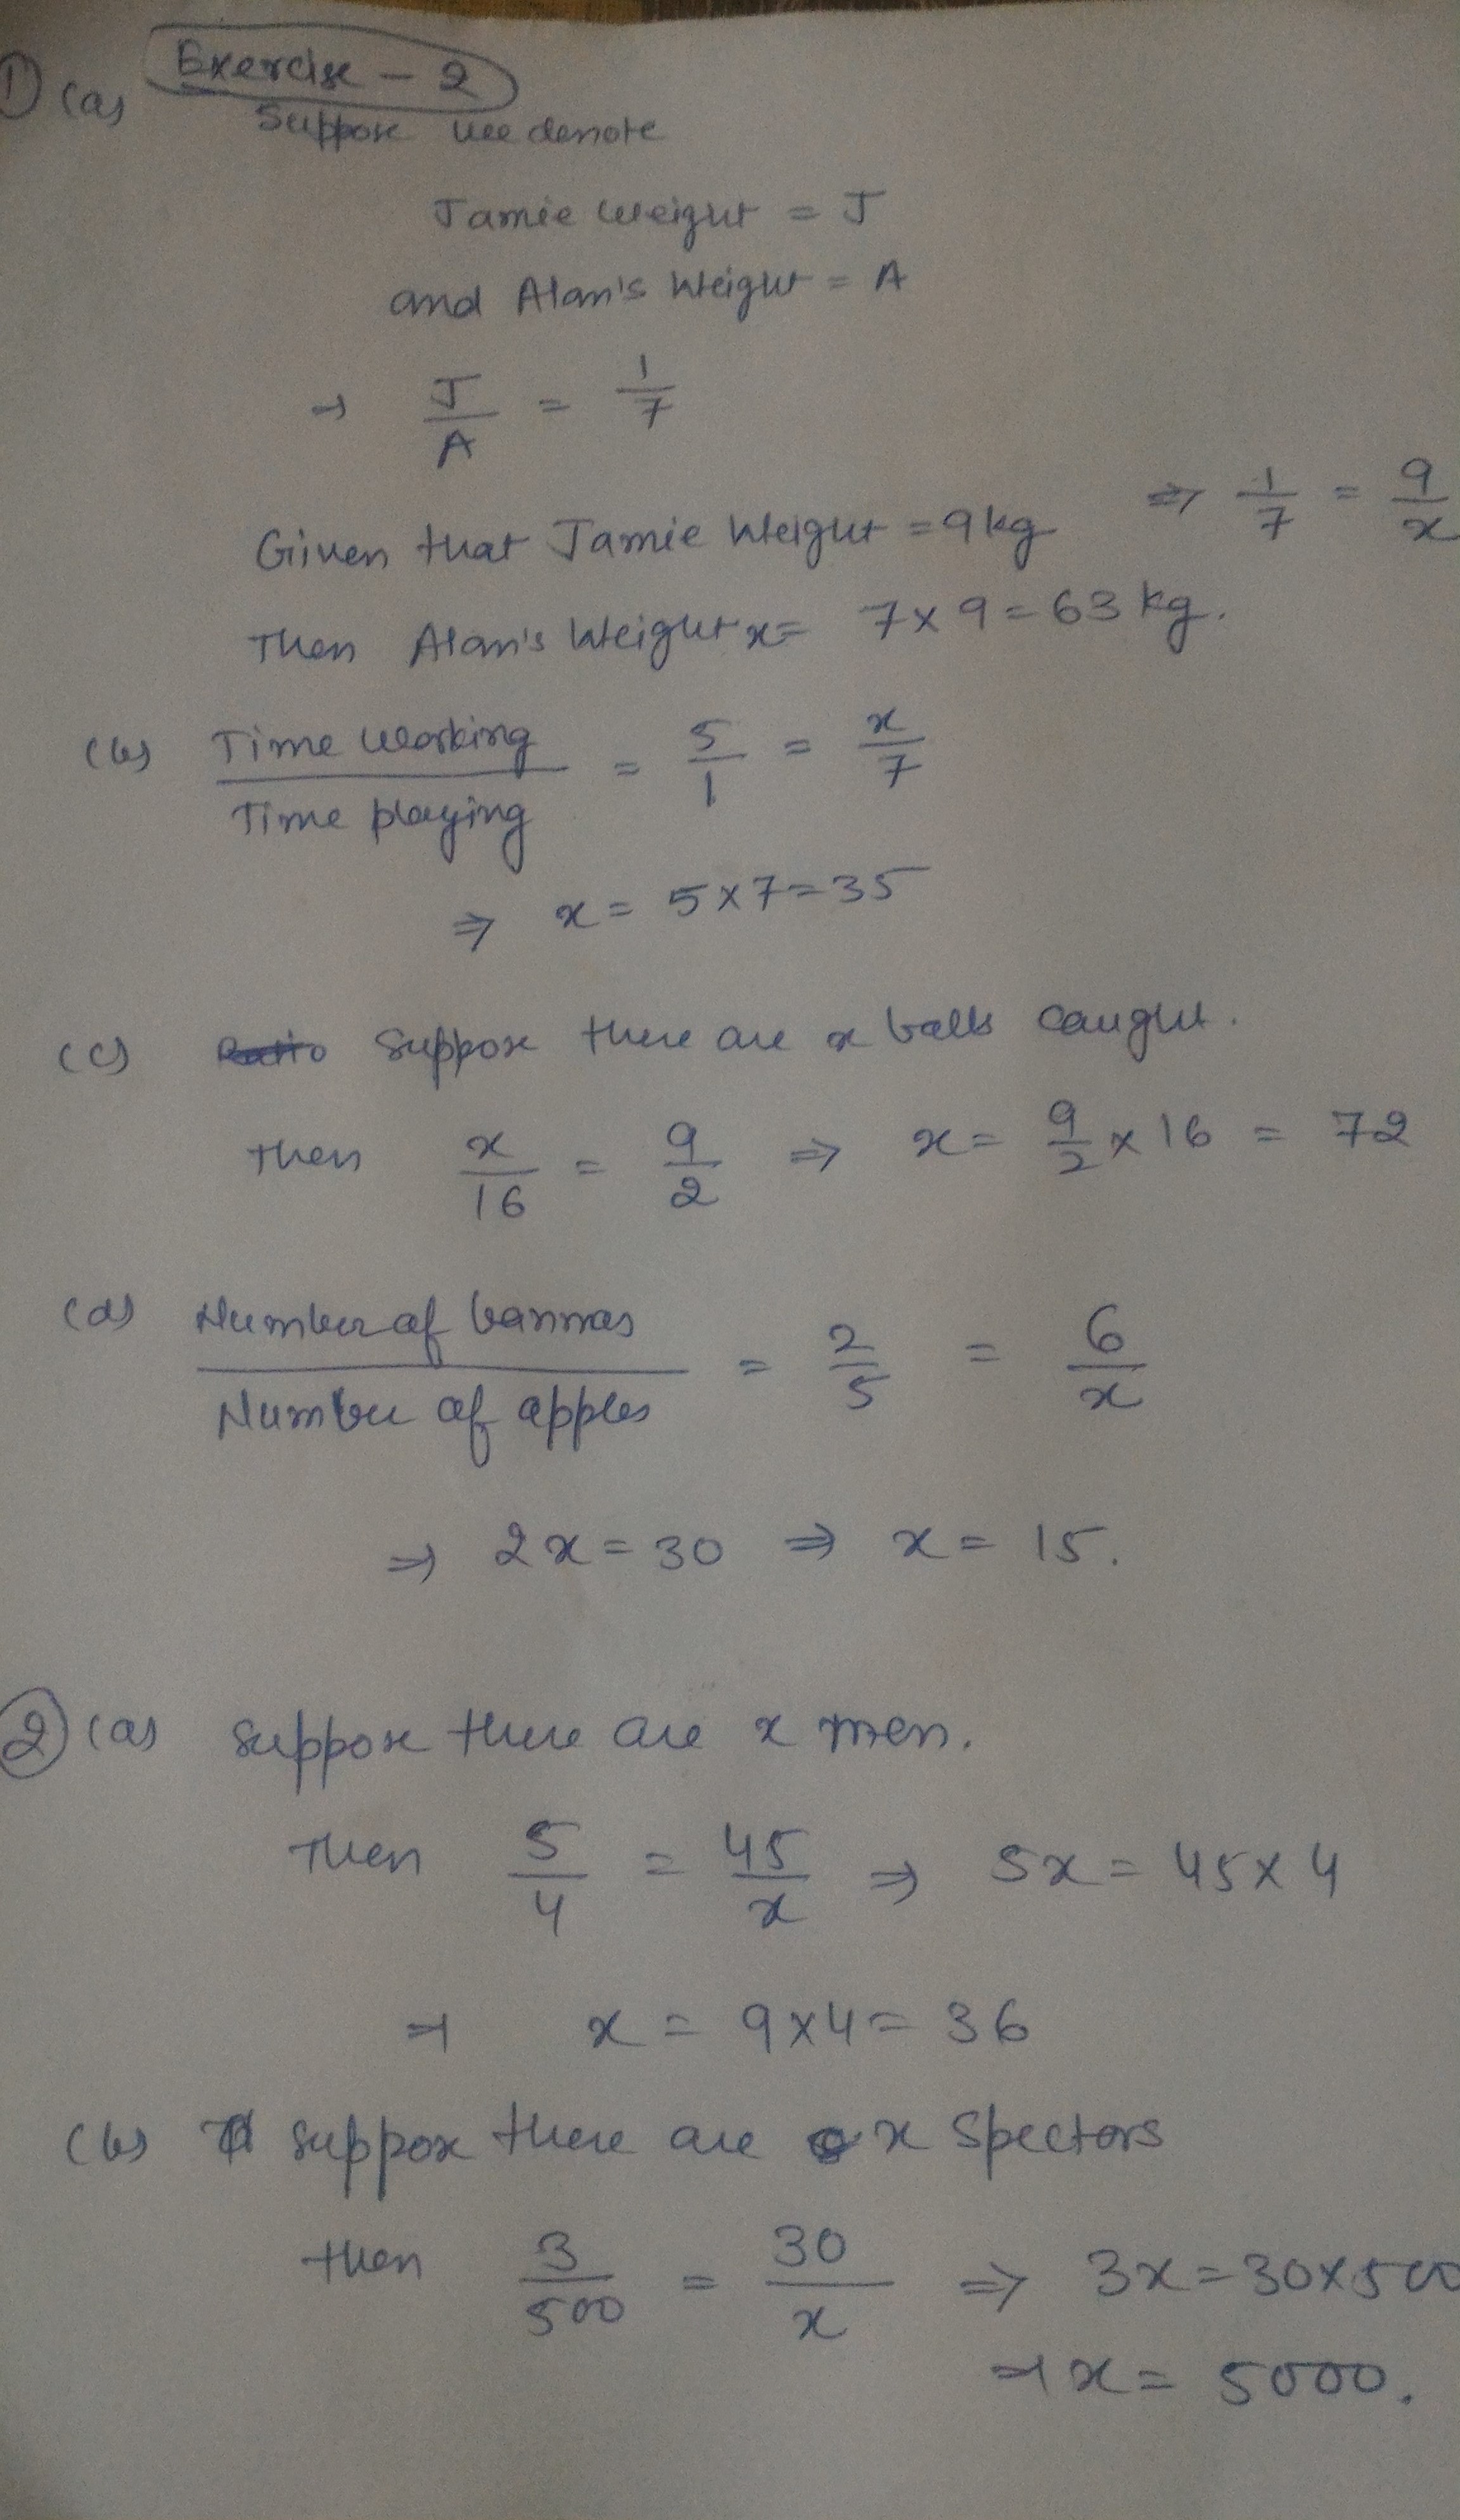 Exercise - 2
① (a) Suppose we denote
Jamie Weight = J
and Alan's Weight = A
⇒ J/A = 1/7
Given that Jamie Weight = 9kg ⇒ 1/7 = 9/x
Then Alan's Weight x = 7 × 9 = 63 kg.
(b) Time working / Time playing = 5/1 = x/7
⇒ x = 5 × 7 = 35
(c) Suppose there are x balls caught.
then x/16 = 9/2 ⇒ x = 9/2 × 16 = 72
(d) Number of bannas / Number of apples = 2/5 = 6/x
⇒ 2x = 30 ⇒ x = 15.
② (a) Suppose there are x men.
Then 5/4 = 45/x ⇒ 5x = 45 × 4
⇒ x = 9 × 4 = 36
(b) Suppose there are x Spectors
then 3/500 = 30/x ⇒ 3x = 30 × 500
⇒ x = 5000.